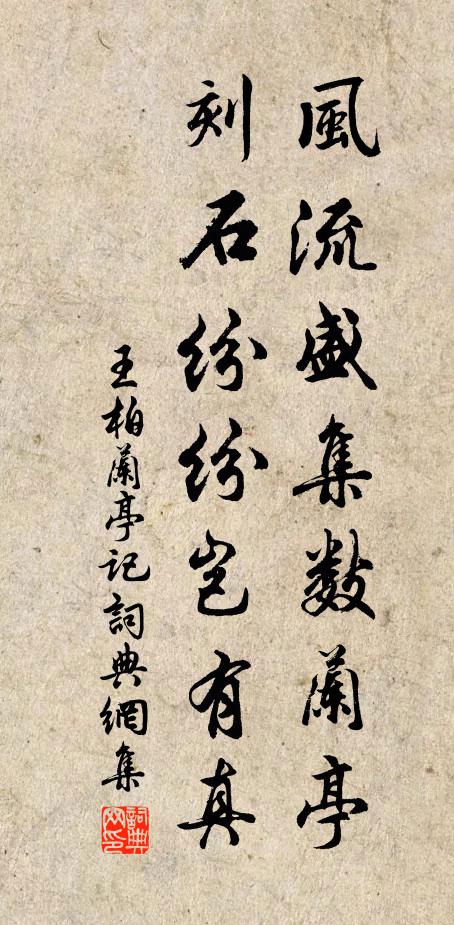 風流盛集數蘭亭
刻石紛紛岂有真
王柏蘭亭记詞典網集
詞典网印